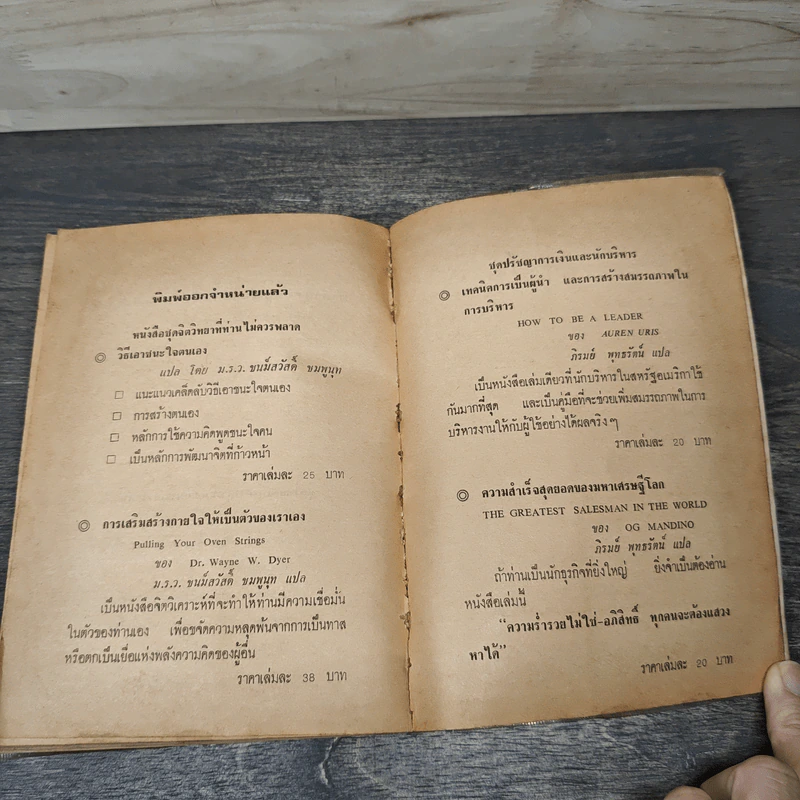 พิมพ์ออกจำหน่ายแล้ว
หนังสือชุดจิตวิทยาที่ท่านไม่ควรพลาด
◎ วิธีเอาชนะใจตนเอง
แปล โดย ม.ร.ว. ขนม์สวัสดิ์ ชมพูนุท
□ แนะแนวเคล็ดลับวิธีเอาชนะใจตนเอง
□ การสร้างตนเอง
□ หลักการใช้ความคิดพูดชนะใจคน
□ เป็นหลักการพัฒนาจิตที่ก้าวหน้า
ราคาเล่มละ 25 บาท
◎ การเสริมสร้างกายใจให้เป็นตัวของเราเอง
Pulling Your Oven Strings
ของ Dr. Wayne W. Dyer
ม.ร.ว. ขนม์สวัสดิ์ ชมพูนุท แปล
เป็นหนังสือจิตวิเคราะห์ที่จะทำให้ท่านมีความเชื่อมั่น
ในตัวของท่านเอง เพื่อขจัดความหลุดพ้นจากการเป็นทาส
หรือตกเป็นเยื่อแห่งพลังความคิดของผู้อื่น
ราคาเล่มละ 38 บาท
ชุดปรัชญาการเงินและนักบริหาร
◎ เทคนิคการเป็นผู้นำ และการสร้างสมรรถภาพใน
การบริหาร
HOW TO BE A LEADER
ของ AUREN URIS
ภิรมย์ พุทธรัตน์ แปล
เป็นหนังสือเล่มเดียวที่นักบริหารในสหรัฐอเมริกาใช้
กันมากที่สุด และเป็นคู่มือที่จะช่วยเพิ่มสมรรถภาพในการ
บริหารงานให้กับผู้ใช้อย่างได้ผลจริงๆ
ราคาเล่มละ 20 บาท
◎ ความสำเร็จสุดยอดของมหาเศรษฐีโลก
THE GREATEST SALESMAN IN THE WORLD
ของ OG MANDINO
ภิรมย์ พุทธรัตน์ แปล
ถ้าท่านเป็นนักธุรกิจที่ยิ่งใหญ่ ยิ่งจำเป็นต้องอ่าน
หนังสือเล่มนี้
"ความร่ำรวยไม่ใช่-อภิสิทธิ์ ทุกคนจะต้องแสวง
หาได้"
ราคาเล่มละ 20 บาท